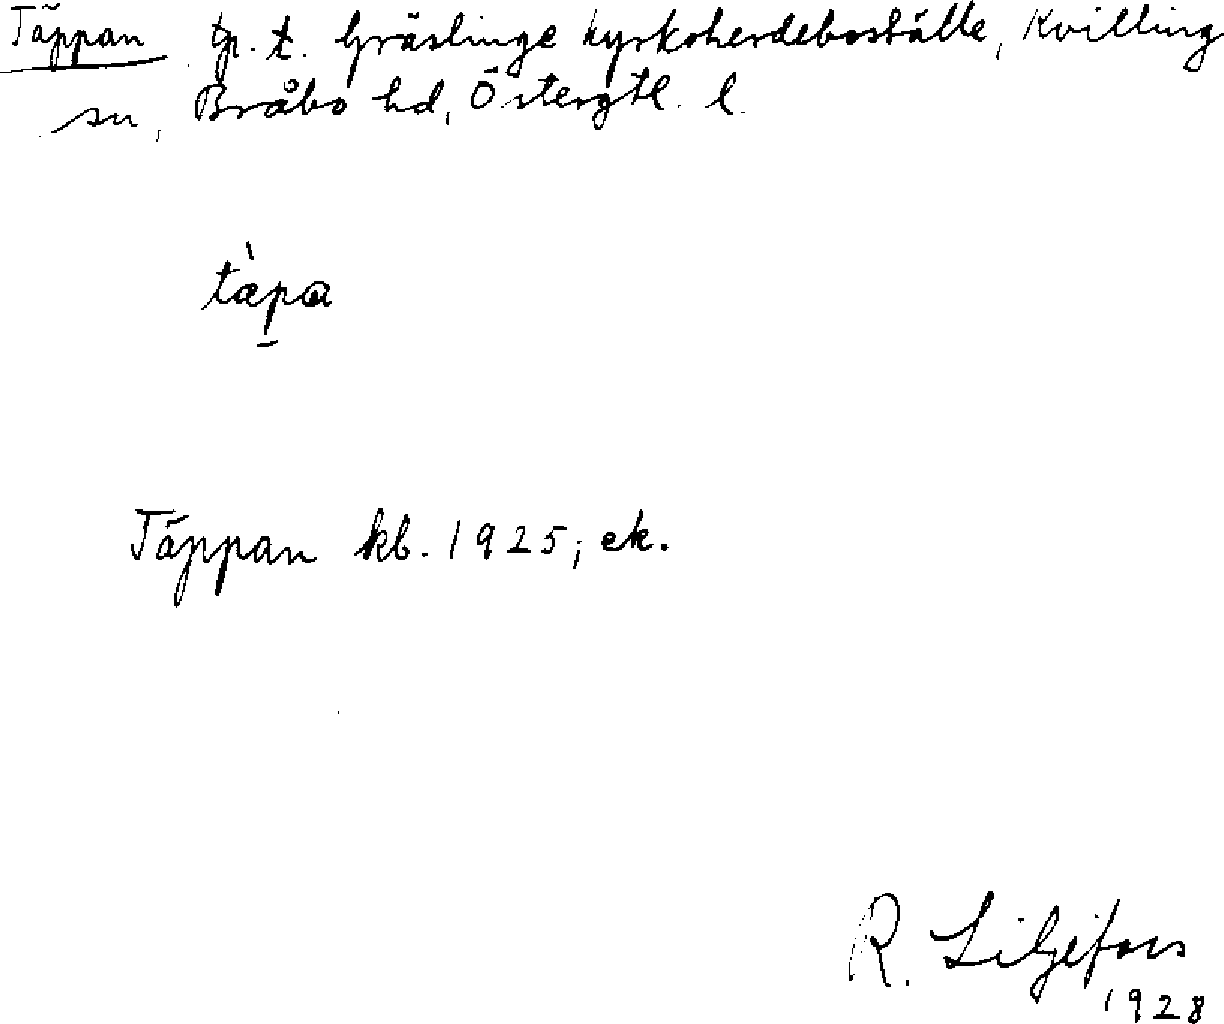 Täppan tp. t. Gräslinge kyrkoherdeboställe, Kvilling
sn, Bråbo hd, Östergtl. l.
tæ̀pa
Täppan kb. 1925; ek.
R. Liljefors
1928